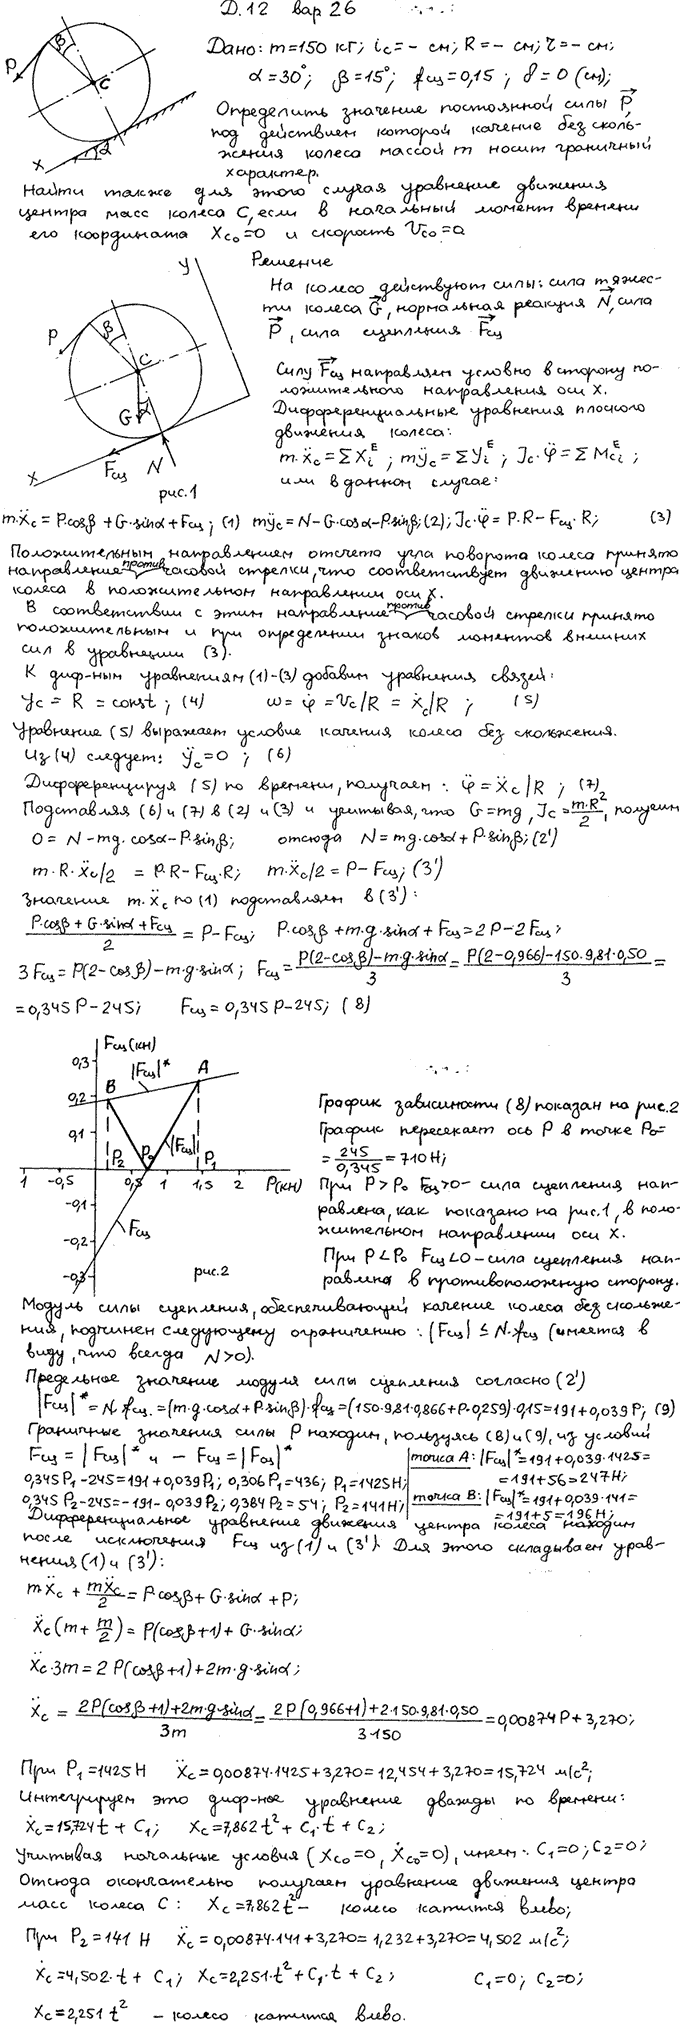 Д.12 вар 26
Дано: m=150 кг; ic=- см; R=- см; r=- см;
α=30°; β=15°; fсц=0,15; δ=0 (см);
Определить значение постоянной силы P,
под действием которой качение без сколь-
жения колеса массой m носит граничный
характер.
Найти также для этого случая уравнение движения
центра масс колеса C, если в начальный момент времени
его координата Xc0=0 и скорость Vc0=0
P
β
C
X
α
Решение
На колесо действуют силы: сила тяжес-
ти колеса G, нормальная реакция N, сила
P, сила сцепления Fсц
Силу Fсц направляем условно в сторону по-
ложительного направления оси X.
Дифференциальные уравнения плоского
движения колеса:
m·ẍc=ΣXiᴱ; mÿc=ΣYiᴱ; Jc·φ̈=ΣMciᴱ;
или в данном случае:
y
P
β
C
G
α
X
Fсц
N
рис.1
m·ẍc=P·cosβ+G·sinα+Fсц; (1) mÿc=N-G·cosα-P·sinβ; (2); Jc·φ̈=P·R-Fсц·R; (3)
Положительным направлением отсчета угла поворота колеса принято
направление против часовой стрелки, что соответствует движению центра
колеса в положительном направлении оси X.
В соответствии с этим направление против часовой стрелки принято
положительным и при определении знаков моментов внешних
сил в уравнении (3).
К диф-ным уравнениям (1)-(3) добавим уравнения связей:
yc=R=const; (4) ω=φ̇=Vc/R=ẋc/R; (5)
Уравнение (5) выражает условие качения колеса без скольжения.
Из (4) следует: ÿc=0; (6)
Дифференцируя (5) по времени, получаем: φ̈=ẍc/R; (7)
Подставляя (6) и (7) в (2) и (3) и учитывая, что G=mg, Jc=m·R²/2, получим
0=N-mg·cosα-P·sinβ; отсюда N=mg·cosα+P·sinβ; (2')
m·R·ẍc/2=P·R-Fсц·R; m·ẍc/2=P-Fсц; (3')
Значение m·ẍc по (1) подставляем в (3'):
(P·cosβ+G·sinα+Fсц)/2=P-Fсц; P·cosβ+m·g·sinα+Fсц=2P-2Fсц;
3Fсц=P(2-cosβ)-m·g·sinα; Fсц=(P(2-cosβ)-m·g·sinα)/3=(P(2-0,966)-150·9,81·0,50)/3=
=0,345P-245; Fсц=0,345P-245; (8)
Fсц(кН)
0,3
0,2
0,1
-0,1
-0,2
-0,3
1 -0,5 0,5 1 1,5 2 P(кН)
|Fсц|*
B
A
P2
P0
|Fсц|
P1
Fсц
рис.2
График зависимости (8) показан на рис.2
График пересекает ось P в точке P0=
=245/0,345=710Н;
При P>P0 Fсц>0- сила сцепления нап-
равлена, как показано на рис.1, в поло-
жительном направлении оси X.
При P<P0 Fсц<0-сила сцепления нап-
равлена в противоположную сторону.
Модуль силы сцепления, обеспечивающий качение колеса без скольже-
ния, подчинен следующему ограничению: |Fсц|≤N·fсц (имеется в
виду, что всегда N>0).
Предельное значение модуля силы сцепления согласно (2')
|Fсц|*=N·fсц=(m·g·cosα+P·sinβ)·fсц=(150·9,81·0,866+P·0,259)·0,15=191+0,039P; (9)
Граничные значения силы P находим, пользуясь (8) и (9), из условий
Fсц=|Fсц|* и -Fсц=|Fсц|*
0,345P1-245=191+0,039P1; 0,306P1=436; P1=1425Н;
0,345P2-245=-191-0,039P2; 0,384P2=54; P2=141Н;
точка A: |Fсц|*=191+0,039·1425=
=191+56=247Н;
точка B: |Fсц|*=191+0,039·141=
=191+5=196Н;
Дифференциальное уравнение движения центра колеса находим
после исключения Fсц из (1) и (3'). Для этого складываем урав-
нения (1) и (3'):
m·ẍc+mẍc/2=P·cosβ+G·sinα+P;
ẍc(m+m/2)=P(cosβ+1)+G·sinα;
ẍc·3m=2P(cosβ+1)+2m·g·sinα;
ẍc=(2P(cosβ+1)+2m·g·sinα)/3m=(2P(0,966+1)+2·150·9,81·0,50)/3·150=0,00874P+3,270;
При P1=1425Н ẍc=0,00874·1425+3,270=12,454+3,270=15,724 м/с²;
Интегрируем это диф-ное уравнение дважды по времени:
ẋc=15,724t+C1; Xc=7,862t²+C1·t+C2;
Учитывая начальные условия (Xc0=0, ẋc0=0), имеем: C1=0; C2=0;
Отсюда окончательно получаем уравнение движения центра
масс колеса C: Xc=7,862t²- колесо катится влево;
При P2=141 Н ẍc=0,00874·141+3,270=1,232+3,270=4,502 м/с²;
ẋc=4,502·t+C1; Xc=2,251·t²+C1·t+C2; C1=0; C2=0;
Xc=2,251t² - колесо катится влево.